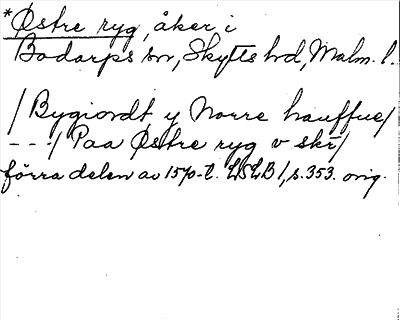 *Östre ryg, åker i
Bodarps sn, Skytts hd, Malm. l.
/Bygiordt y Norre hauffue/
---/Paa Østre ryg v skr/
förra delen av 1570-t. LSLB 1, s. 353. orig.